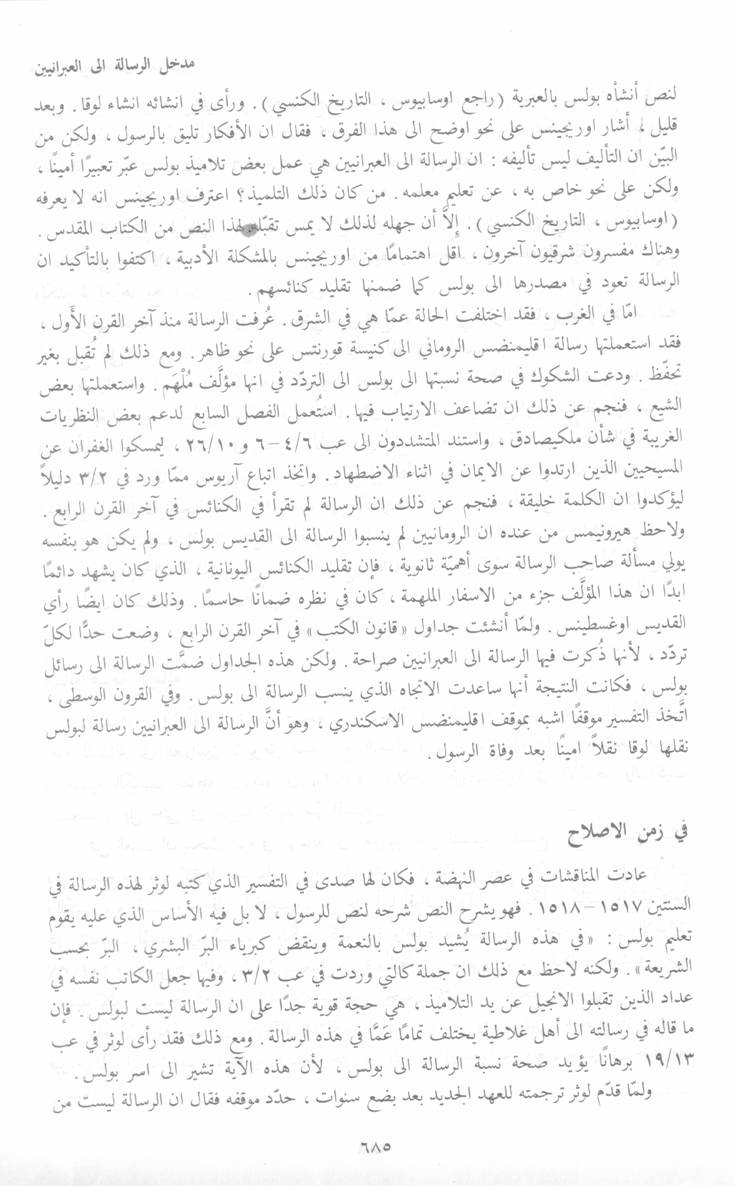 مدخل الرسالة الى العبرانيين
لنص أنشأه بولس بالعبرية (راجع اوسابيوس ، التاريخ الكنسي) . ورأى في انشائه انشاء لوقا . وبعد
قليل ، أشار اوريجينس على نحو اوضح الى هذا الفرق ، فقال ان الأفكار تليق بالرسول ، ولكن من
البيّن ان التأليف ليس تأليفه : ان الرسالة الى العبرانيين هي عمل بعض تلاميذ بولس عبّر تعبيرًا أمينًا ،
ولكن على نحو خاص به ، عن تعليم معلمه . من كان ذلك التلميذ؟ اعترف اوريجينس انه لا يعرفه
(اوسابيوس ، التاريخ الكنسي) . إلاَّ أن جهله لذلك لا يمس تقبّله لهذا النص من الكتاب المقدس .
وهناك مفسرون شرقيون آخرون ، اقل اهتمامًا من اوريجينس بالمشكلة الأدبية ، اكتفوا بالتأكيد ان
الرسالة تعود في مصدرها الى بولس كما ضمنها تقليد كنائسهم .
امّا في الغرب ، فقد اختلفت الحالة عمّا هي في الشرق . عُرفت الرسالة منذ آخر القرن الأَول ،
فقد استعملتها رسالة اقليمنضس الروماني الى كنيسة قورنتس على نحو ظاهر . ومع ذلك لم تُقبل بغير
تحفّظ . ودعت الشكوك في صحة نسبتها الى بولس الى التردّد في انها مؤلَّف مُلْهَم . واستعملتها بعض
الشيع ، فنجم عن ذلك ان تضاعف الارتياب فيها . استُعمل الفصل السابع لدعم بعض النظريات
الغريبة في شأن ملكيصادق ، واستند المتشددون الى عب ٤/٦–٦ و ٢٦/١٠ ، ليمسكوا الغفران عن
المسيحيين الذين ارتدوا عن الايمان في اثناء الاضطهاد . واتخذ اتباع آريوس ممّا ورد في ٣/٢ دليلاً
ليؤكدوا ان الكلمة خليقة ، فنجم عن ذلك ان الرسالة لم تقرأ في الكنائس في آخر القرن الرابع .
ولاحظ هيرونيمس من عنده ان الرومانيين لم ينسبوا الرسالة الى القديس بولس ، ولم يكن هو بنفسه
يولي مسألة صاحب الرسالة سوى أهميّة ثانوية ، فإن تقليد الكنائس اليونانية ، الذي كان يشهد دائمًا
ابدًا ان هذا المؤلَّف جزء من الاسفار الملهمة ، كان في نظره ضمانًا حاسمًا . وذلك كان ايضًا رأي
القديس اوغسطينس . ولمّا أنشئت جداول «قانون الكتب» في آخر القرن الرابع ، وضعت حدًّا لكلّ
تردّد ، لأنها ذُكرت فيها الرسالة الى العبرانيين صراحة . ولكن هذه الجداول ضمَّت الرسالة الى رسائل
بولس ، فكانت النتيجة أنها ساعدت الاتجاه الذي ينسب الرسالة الى بولس . وفي القرون الوسطى ،
اتَّخذ التفسير موقفًا اشبه بموقف اقليمنضس الاسكندري ، وهو أنَّ الرسالة الى العبرانيين رسالة لبولس
نقلها لوقا نقلاً امينًا بعد وفاة الرسول .
في زمن الاصلاح
عادت المناقشات في عصر النهضة ، فكان لها صدى في التفسير الذي كتبه لوثر لهذه الرسالة في
السنتين ١٥١٧–١٥١٨ . فهو يشرح النص شرحه لنص للرسول ، لا بل فيه الأساس الذي عليه يقوم
تعليم بولس : «في هذه الرسالة يُشيد بولس بالنعمة وينقض كبرياء البرّ البشري ، البرّ بحسب
الشريعة» . ولكنه لاحظ مع ذلك ان جملة كالتي وردت في عب ٣/٢ ، وفيها جعل الكاتب نفسه في
عداد الذين تقبلوا الانجيل عن يد التلاميذ ، هي حجة قوية جدًا على ان الرسالة ليست لبولس . فإن
ما قاله في رسالته الى أهل غلاطية يختلف تمامًا عَمَّا في هذه الرسالة . ومع ذلك فقد رأى لوثر في عب
١٩/١٣ برهانًا يؤيد صحة نسبة الرسالة الى بولس ، لأن هذه الآية تشير الى اسر بولس .
ولمّا قدّم لوثر ترجمته للعهد الجديد بعد بضع سنوات ، حدّد موقفه فقال ان الرسالة ليست من
٦٨٥